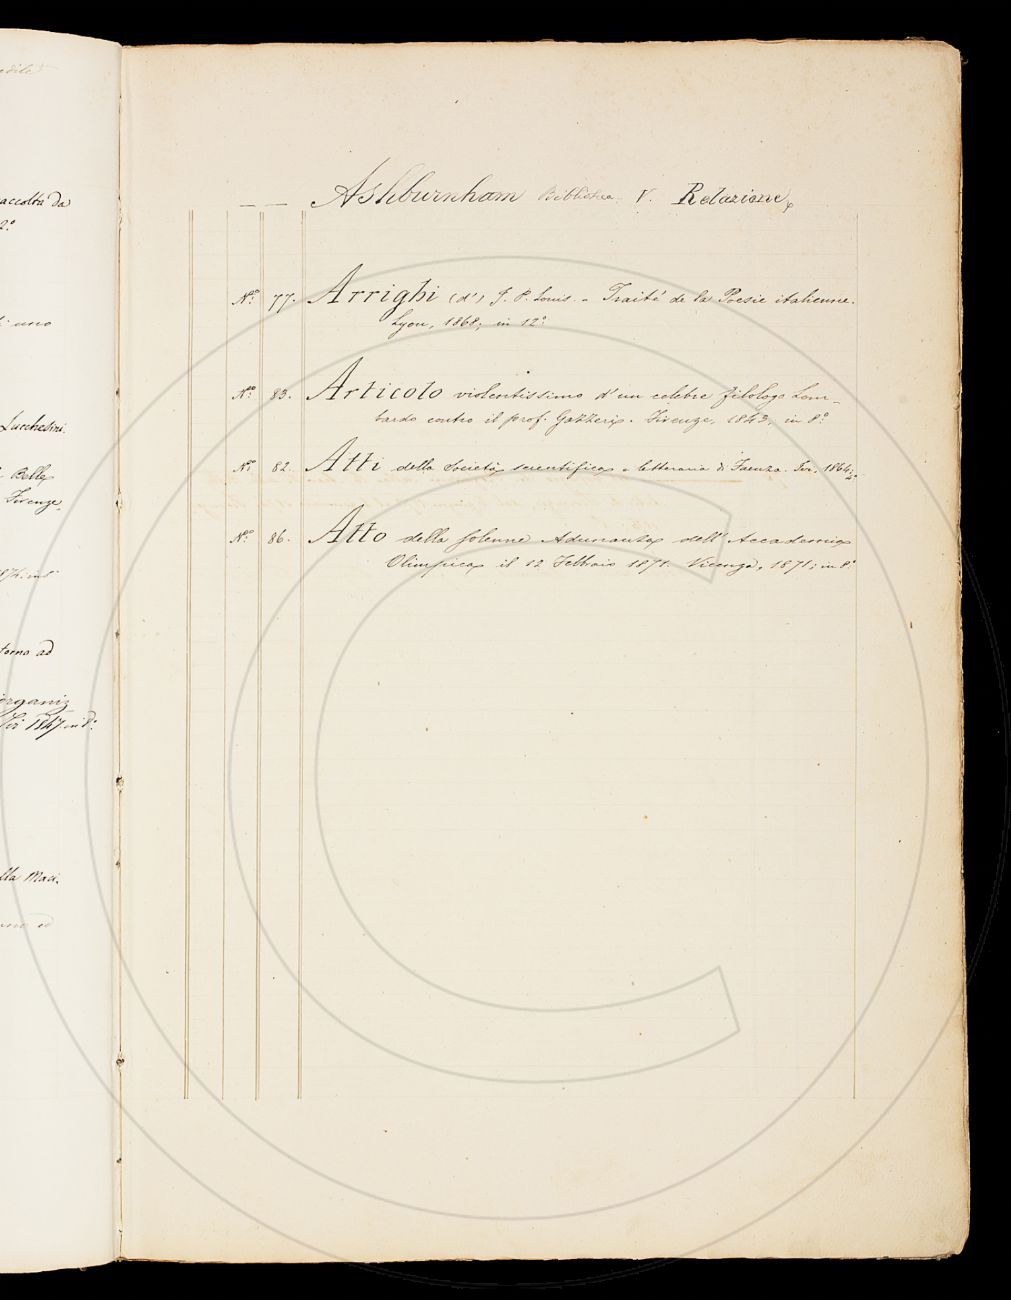 accolta da
2.°
uno
Lucchesini.
Belle
Firenze,
torno ad
organiz
1847 in 8.°
lla Mac.
— — Ashburnham Biblioteca. V. Relazione,
N.° 77. Arrighi (d') J. P. Louis. - Traité de la Poesie italienne.
Lyon, 1868; in 12.°
N.° 83. Articolo violentissimo d'un celebre filologo Lom-
bardo contro il prof. Gazzeri. Firenze, 1843, in 8.°
N.° 82. Atti della Società scientifica e letteraria di Faenza. 1864;
N.° 86. Atto della solenne Adunanza dell' Accademia
Olimpica il 12 Febbraio 1871. Vicenza, 1871; in 8.°